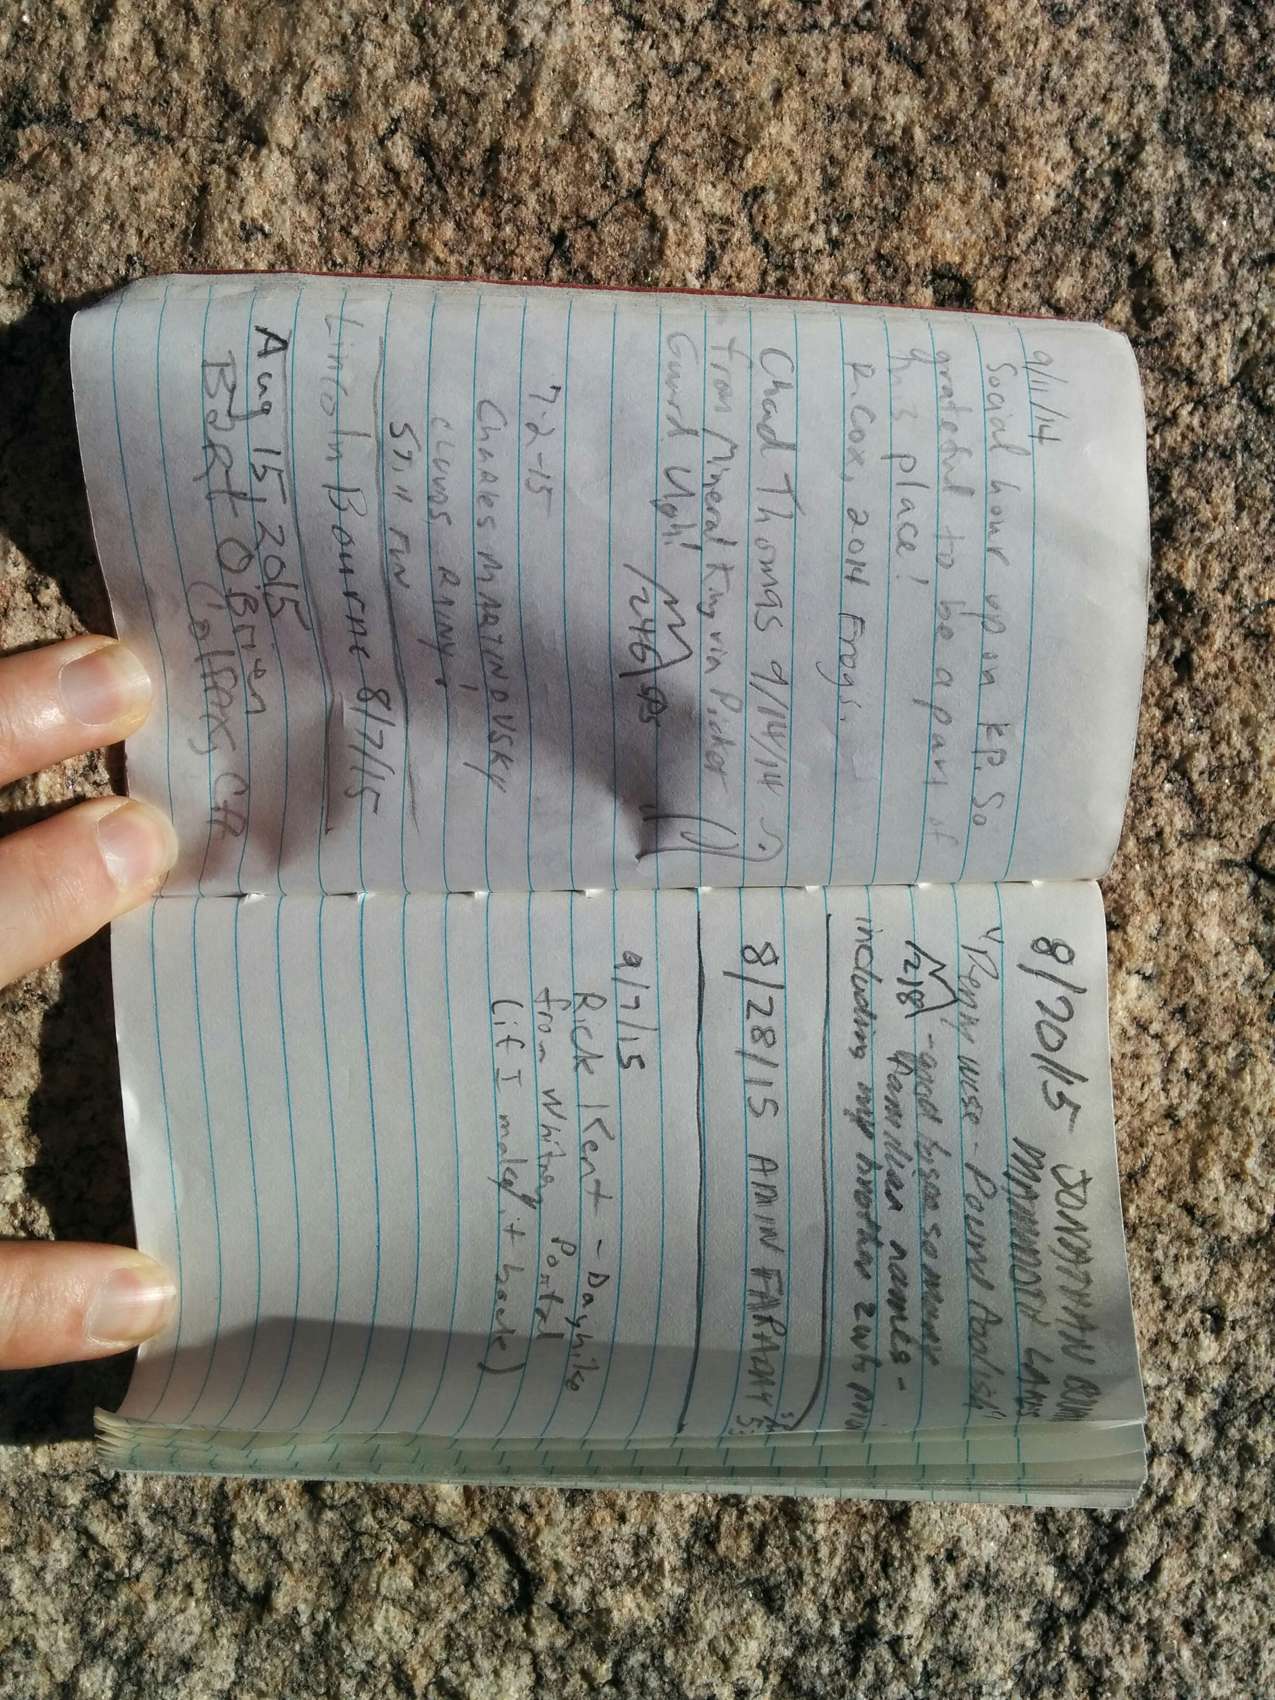 9/11/14
Social hour up on KP. So
grateful to be a part of
this place!
R. Cox, 2014 Frogs.
Chad Thomas 9/14/14 :)
from Mineral King via Picket
Guard Ugh!
1246
7-2-15
Charles MARTINOVSKY
CLUDS, RAINY,
STill FUN
Lincoln Bourne 8/7/15
Aug 15 2015
BaRt O'Brien
Colfax CA
8/20/15 JONATHAN
MAMMOTH LAKES
"Pennywise - Pound Foolish"
1218 - good to see so many
familiar names -
including my brother
8/28/15 AMIN FARAGHY
9/7/15
Rick Kent - Dayhike
from Whitney Portal
(if I make it back)